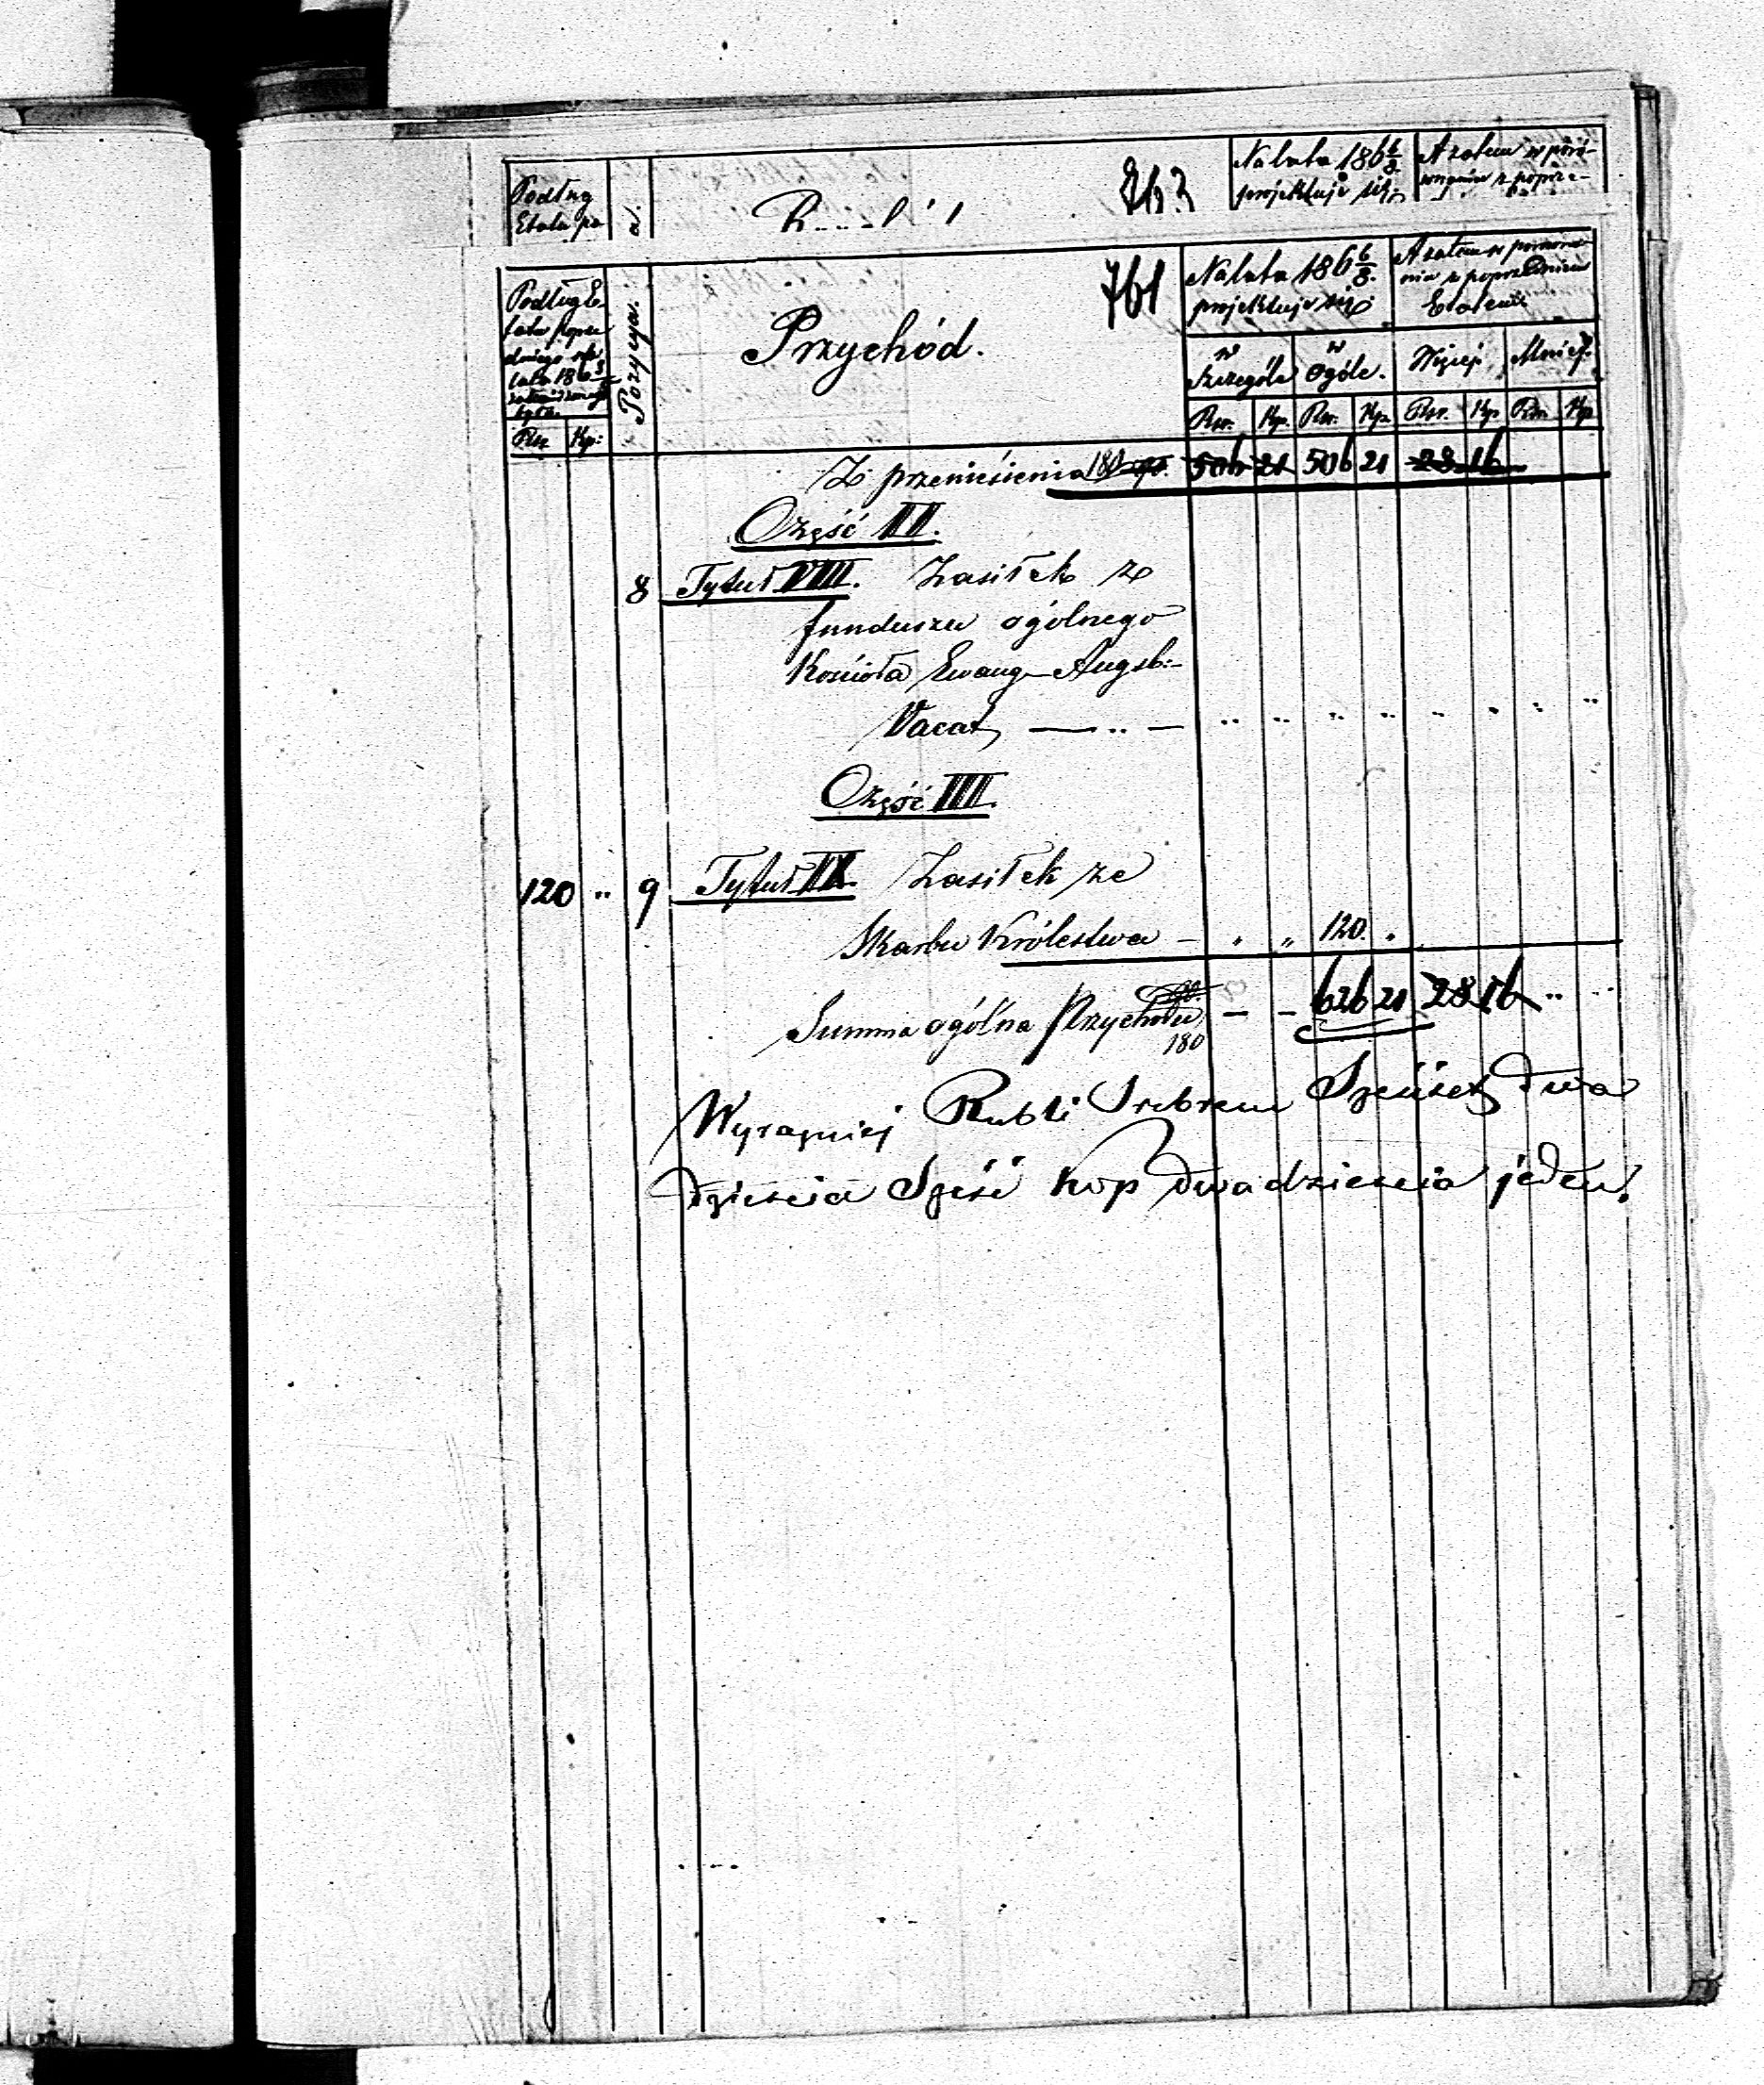 Podług
Etatu po
Na lata 186 6/8
projektuje się
A zatem w poró-
wnaniu z poprze-
761
Podług E-
tatu poprze
dniego na
lata 186 3/5
Rsr. Kp:
Pozycya.
Przychód.
Na lata 186 6/8.
projektuje się.
A zatem w porówna-
niu z poprzednim
Etatem
w Szczególe
w ogóle.
Więcej
Mniej.
Rsr. Kp. Rsr. Kp. Rsr. Kp. Rsr. Kp
Z przeniesienia 180 90. 506 21 506 21 28 16
Część II.
8 Tytuł VIII. Zasiłek z
funduszu ogólnego
Kościoła Ewang-Augsb:-
Vacat — „ —
Część III.
120 „ 9 Tytuł IX. Zasiłek ze
Skarbu Królestwa - „ „ 120. „
Summa ogólna Przychodu 90. - - 626 21 28 16 „ „
180
Wyrazniej Rubli Srebrem Sześset dwa
dzieścia Sześć kop dwadzieścia jeden.